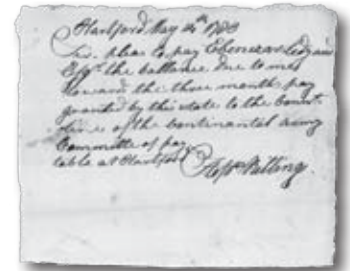 Hartford May 24th 1783
Sir. pleas to pay Ebenezar Ledyard
Esqr. the ballance due to me
toward the three months pay
granted by this state to the Connt.
Line of the Continental army
Committe of pay
table at Hartford
Nutting